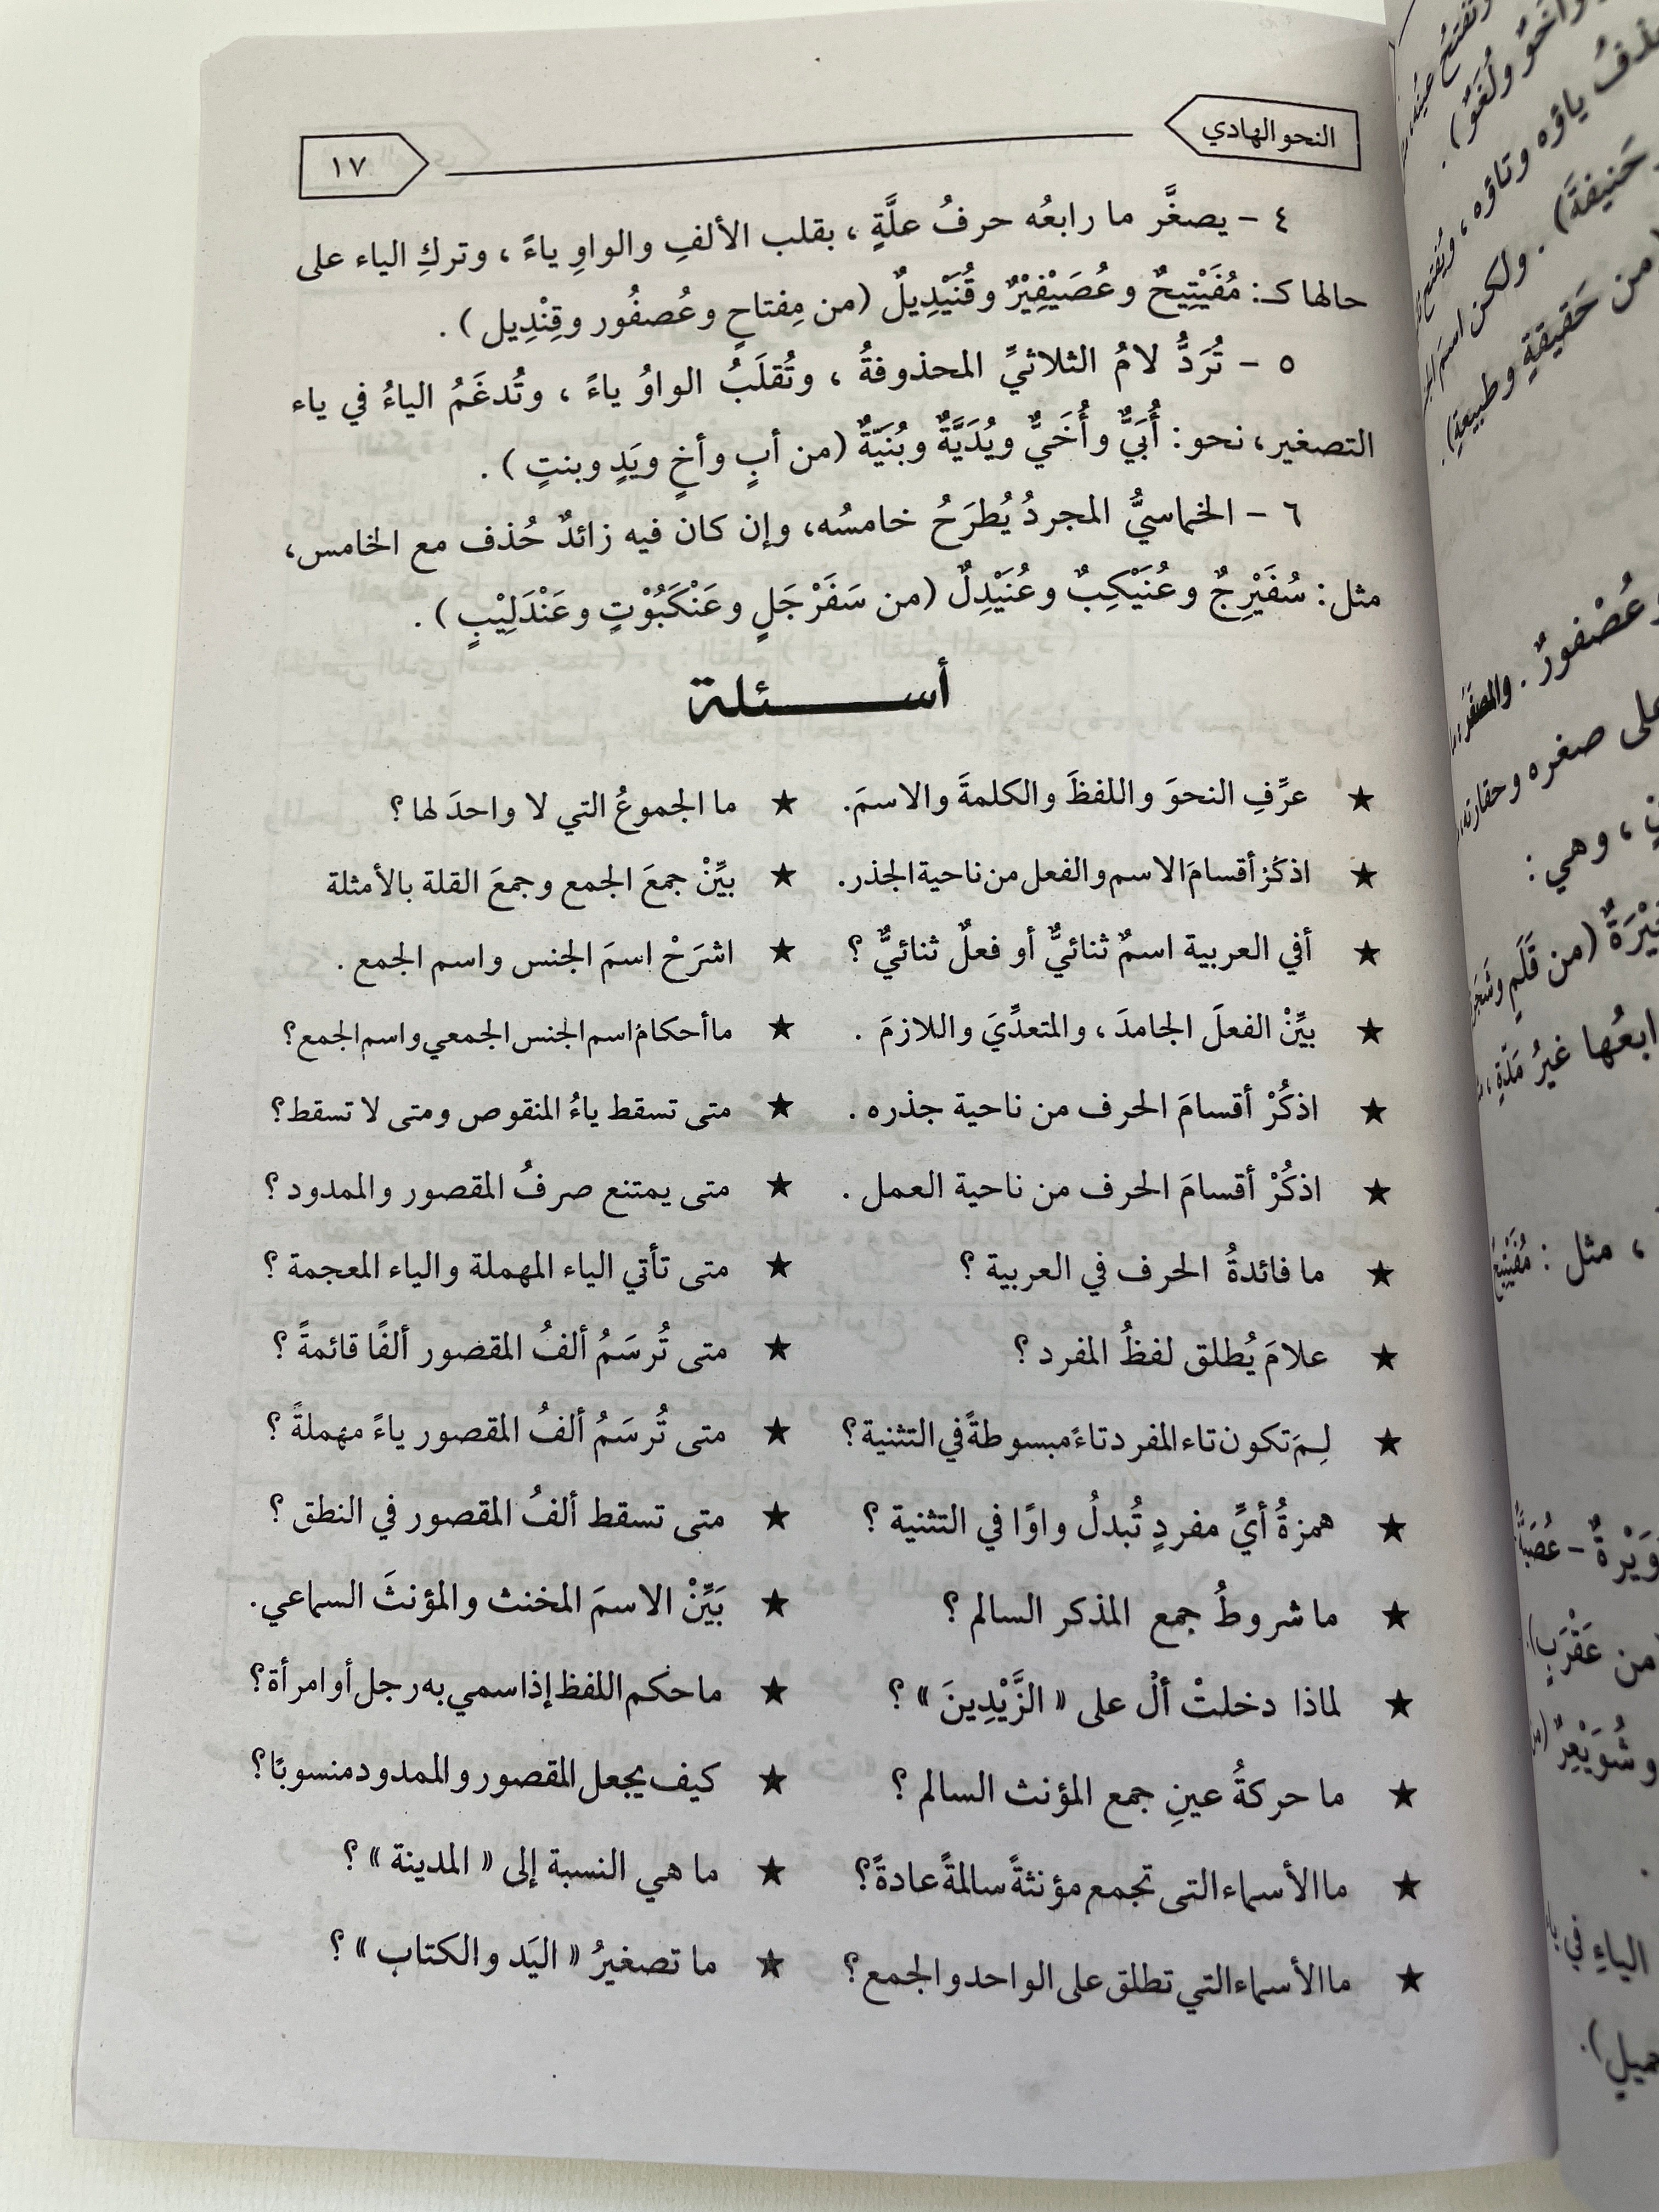 النحو الهادي
١٧
٤ - يصغَّر ما رابعُه حرفُ علَّةٍ ، بقلب الألفِ والواوِ ياءً ، وتركِ الياء على
حالها كـ: مُفَيْتِيحٌ وعُصَيْفِيْرٌ وقُنَيْدِيلٌ (من مِفتاحٍ وعُصفُور وقِنْدِيل ) .
٥ - تُرَدُّ لامُ الثلاثيِّ المحذوفةُ ، وتُقلَبُ الواوُ ياءً ، وتُدغَمُ الياءُ في ياء
التصغير، نحو: أُبَيٌّ وأُخَيٌّ ويُدَيَّةٌ وبُنَيَّةٌ (من أبٍ وأخٍ ويَدٍ وبنتٍ ) .
٦ - الخماسيُّ المجردُ يُطرَحُ خامسُه، وإن كان فيه زائدٌ حُذف مع الخامس،
مثل: سُفَيْرِجٌ وعُنَيْكِبٌ وعُنَيْدِلٌ (من سَفَرْجَلٍ وعَنْكَبُوْتٍ وعَنْدَلِيْبٍ ) .
أســـــئلة
★ عرِّفِ النحوَ واللفظَ والكلمةَ والاسمَ.
★ اذكُرْ أقسامَ الاسم والفعل من ناحية الجذر.
★ أفي العربية اسمٌ ثنائيٌّ أو فعلٌ ثنائيٌّ ؟
★ بيِّنْ الفعلَ الجامدَ ، والمتعدِّيَ واللازمَ .
★ اذكُرْ أقسامَ الحرف من ناحية جذره .
★ اذكُرْ أقسامَ الحرف من ناحية العمل .
★ ما فائدةُ الحرف في العربية ؟
★ علامَ يُطلق لفظُ المفرد ؟
★ لِمَ تكون تاء المفرد تاءً مبسوطةً في التثنية ؟
★ همزةُ أيِّ مفردٍ تُبدلُ واوًا في التثنية ؟
★ ما شروطُ جمع المذكر السالم ؟
★ لماذا دخلتْ ألْ على « الزَّيْدِينَ » ؟
★ ما حركةُ عينِ جمع المؤنث السالم ؟
★ ما الأسماء التى تجمع مؤنثةً سالمةً عادةً؟
★ ما الأسماء التي تطلق على الواحد والجمع ؟
★ ما الجموعُ التي لا واحدَ لها ؟
★ بيِّنْ جمعَ الجمع وجمعَ القلة بالأمثلة
★ اشرَحْ اسمَ الجنس واسم الجمع .
★ ما أحكامُ اسم الجنس الجمعي واسم الجمع ؟
★ متى تسقط ياءُ المنقوص ومتى لا تسقط؟
★ متى يمتنع صرفُ المقصور والممدود ؟
★ متى تأتي الياء المهملة والياء المعجمة ؟
★ متى تُرسَمُ ألفُ المقصور ألفًا قائمةً ؟
★ متى تُرسَمُ ألفُ المقصور ياءً مهملةً ؟
★ متى تسقط ألفُ المقصور في النطق ؟
★ بَيِّنْ الاسمَ المخنث والمؤنثَ السماعي.
★ ما حكم اللفظ إذا سمي به رجل أو امرأة؟
★ كيف يجعل المقصور والممدود منسوبًا؟
★ ما هي النسبة إلى « المدينة » ؟
★ ما تصغيرُ « اليَد والكتاب » ؟